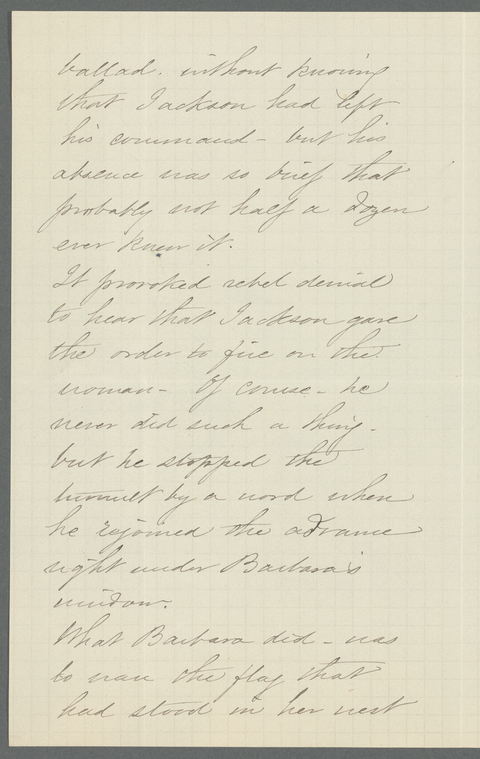 ballad. without knowing
that Jackson had left
his command - but his
absence was so brief that
probably not half a dozen
ever knew it.
It provoked rebel denial
to hear that Jackson gave
the order to fire on the
woman - Of course - he
never did such a thing -
but he stopped the
tumult by a word when
he rejoined the advance
right under Barbara's
window.
What Barbara did - was
to wave the flag that
had stood in her west